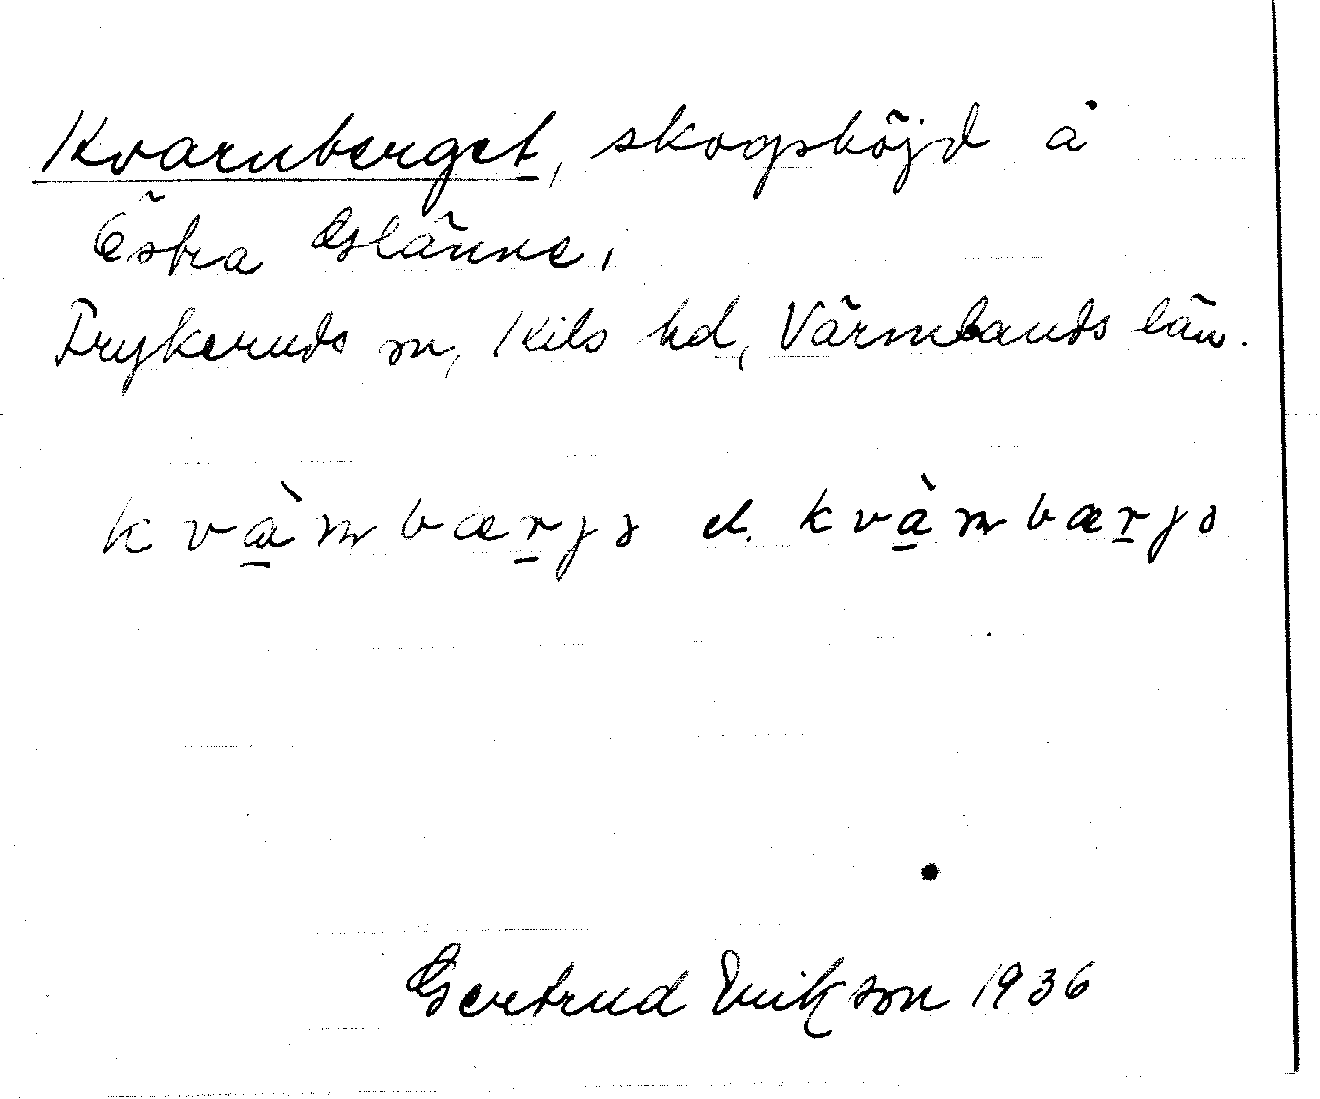 Kvarnberget, skogshöjd å
Östra Glänne,
Frykeruds sn, Kils hd, Värmlands län.
kvà̱mbæṟjə el. kvà̱mbæṟjə
Gertrud Erikson 1936